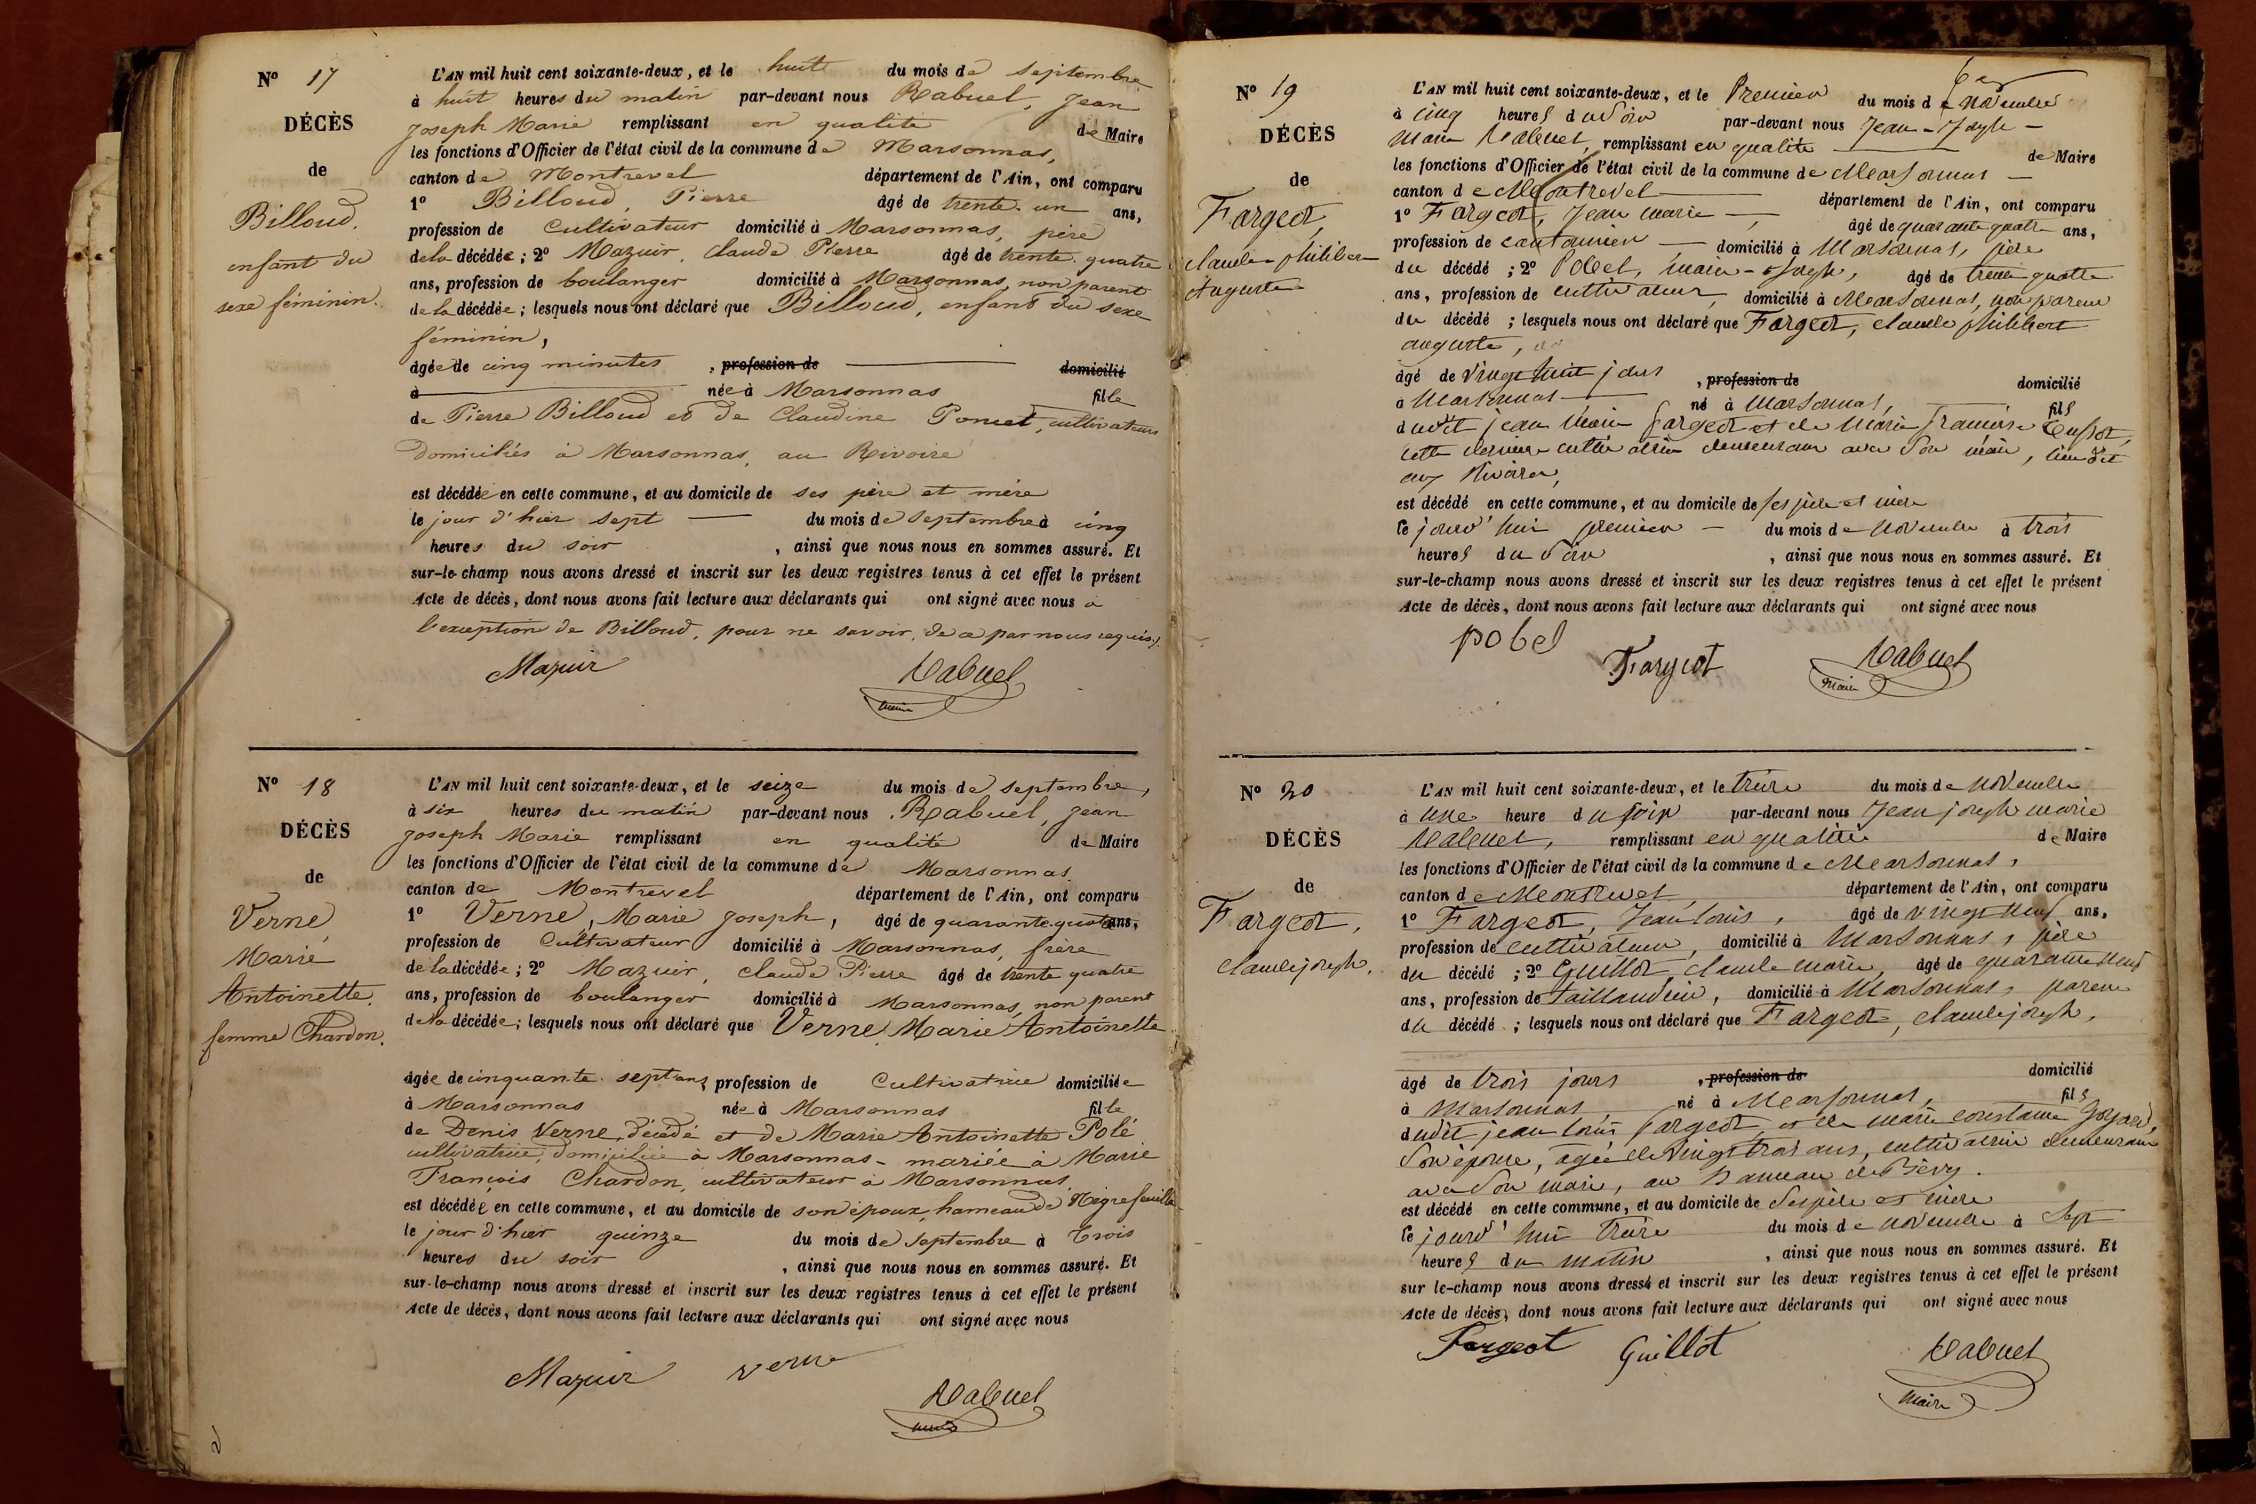 N° 17
DÉCÈS
de
Billoud,
enfant du
sexe féminin.
L'AN mil huit cent soixante-deux, et le huit du mois de septembre
à huit heures du matin par-devant nous Rabuel, Jean
Joseph Marie remplissant en qualité de Maire
les fonctions d'Officier de l'état civil de la commune de Marsonnas,
canton de Montrevel département de l'Ain, ont comparu
1° Billoud, Pierre âgé de trente-un ans,
profession de Cultivateur domicilié à Marsonnas, père
de la décédée ; 2° Mazuir, Claude Pierre âgé de trente-quatre
ans, profession de boulanger domicilié à Marsonnas, non parent
de la décédée ; lesquels nous ont déclaré que Billoud, enfant du sexe
féminin,
âgée de cinq minutes , profession de domicilié
à née à Marsonnas fille
de Pierre Billoud et de Claudine Poncet, cultivateurs
domiciliés à Marsonnas, au Rivoire
est décédée en cette commune, et au domicile de ses père et mère
le jour d'hier sept du mois de septembre à cinq
heures du soir , ainsi que nous nous en sommes assuré. Et
sur-le-champ nous avons dressé et inscrit sur les deux registres tenus à cet effet le présent
Acte de décès, dont nous avons fait lecture aux déclarants qui ont signé avec nous à
l'exception de Billoud, pour ne savoir, de ce par nous requis.
Mazuir Rabuel
maire
N° 18
DÉCÈS
de
Verne,
Marie
Antoinette,
femme Chardon.
L'AN mil huit cent soixante-deux, et le seize du mois de septembre,
à six heures du matin par-devant nous Rabuel, Jean
Joseph Marie remplissant en qualité de Maire
les fonctions d'Officier de l'état civil de la commune de Marsonnas
canton de Montrevel département de l'Ain, ont comparu
1° Verne, Marie Joseph, âgé de quarante-quatre ans,
profession de Cultivateur domicilié à Marsonnas, frère
de la décédée ; 2° Mazuir, Claude Pierre âgé de trente quatre
ans, profession de boulanger domicilié à Marsonnas, non parent
de la décédée ; lesquels nous ont déclaré que Verne, Marie Antoinette
âgée de cinquante-sept ans, profession de Cultivatrice domiciliée
à Marsonnas née à Marsonnas fille
de Denis Verne, décédé et de Marie Antoinette Polé
cultivatrice, domiciliée à Marsonnas - mariée à Marie
François Chardon, cultivateur à Marsonnas,
est décédée en cette commune, et au domicile de son époux, hameau de Nègrefeuille
le jour d'hier quinze du mois de septembre à trois
heures du soir , ainsi que nous nous en sommes assuré. Et
sur-le-champ nous avons dressé et inscrit sur les deux registres tenus à cet effet le présent
Acte de décès, dont nous avons fait lecture aux déclarants qui ont signé avec nous
Mazuir verne
Rabuel
maire
N° 19
DÉCÈS
de
Fargeot,
claude-philibert
Auguste
L'AN mil huit cent soixante-deux, et le Premier du mois de novembre
à cinq heures du soir par-devant nous Jean-Joseph-
Marie Rabuel, remplissant en qualité de Maire
les fonctions d'Officier de l'état civil de la commune de Marsonnas
canton de Montrevel département de l'Ain, ont comparu
1° Fargeot, Jean marie, âgé de quarante-quatre ans,
profession de cantonnier domicilié à Marsonnas, père
du décédé ; 2° Pobel, marie-Joseph, âgé de trente quatre
ans, profession de cultivateur, domicilié à Marsonnas, non parent
du décédé ; lesquels nous ont déclaré que Fargeot, claude philibert
auguste,
âgé de vingt huit jours , profession de domicilié
à Marsonnas né à Marsonnas, fils
dudit jean Marie fargeot et de Marie françoise
cette dernière cultivatrice demeurant avec son mari, lieu dit
aux Rivoires,
est décédé en cette commune, et au domicile de ses père et mère
le jourd'hui premier du mois de novembre à trois
heures du soir , ainsi que nous nous en sommes assuré. Et
sur-le-champ nous avons dressé et inscrit sur les deux registres tenus à cet effet le présent
Acte de décès, dont nous avons fait lecture aux déclarants qui ont signé avec nous
pobel Fargeot Rabuel
maire
N° 20
DÉCÈS
de
Fargeot,
claude joseph.
L'AN mil huit cent soixante-deux, et le treize du mois de novembre
à une heure du soir par-devant nous Jean joseph marie
Rabuel, remplissant en qualité de Maire
les fonctions d'Officier de l'état civil de la commune de Marsonnas,
canton de Montrevel département de l'Ain, ont comparu
1° Fargeot, Jean louis, âgé de vingt neuf ans,
profession de cultivateur, domicilié à Marsonnas, père
du décédé ; 2° Guillot, claude marie, âgé de quarante neuf
ans, profession de taillandier, domicilié à Marsonnas, parent
du décédé ; lesquels nous ont déclaré que Fargeot, claude joseph,
âgé de trois jours , profession de domicilié
à Marsonnas né à Marsonnas, fils
dudit jean louis fargeot et de marie constance Goyard,
son épouse, agée de vingt trois ans, cultivatrice demeurant
avec son mari, au hameau de Biévy.
est décédé en cette commune, et au domicile de ses père et mère
le jourd'hui treize du mois de novembre à sept
heures du matin , ainsi que nous nous en sommes assuré. Et
sur le-champ nous avons dressé et inscrit sur les deux registres tenus à cet effet le présent
Acte de décès, dont nous avons fait lecture aux déclarants qui ont signé avec nous
Fargeot Guillot Rabuel
Maire